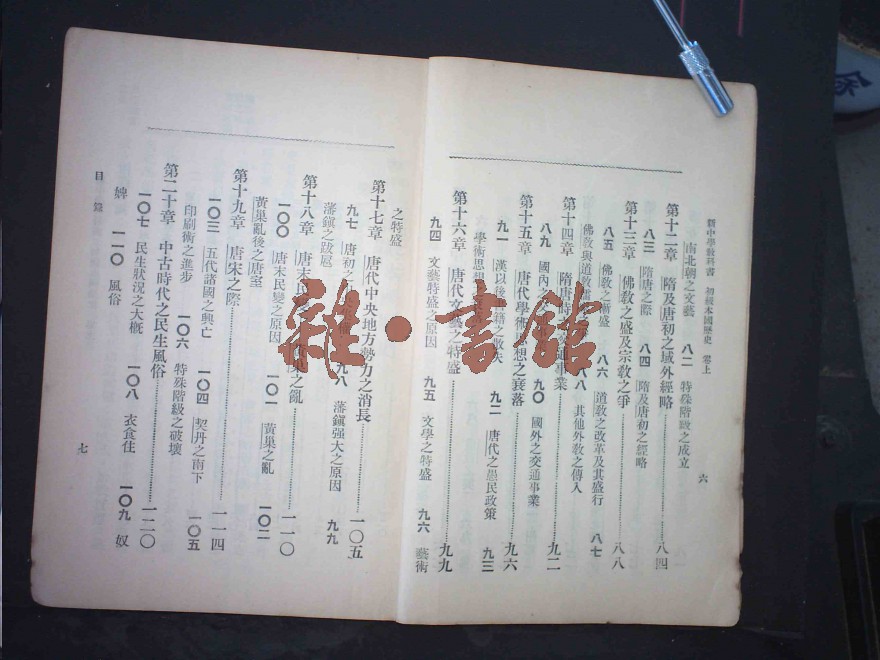 新中學教科書　初級本國歷史　卷上
六
南北朝之文藝　八二　特殊階級之成立
第十二章　隋及唐初之域外經略　八四
八三　隋唐之際　八四　隋及唐初之經略
第十三章　佛教之盛及宗教之爭　八八
八五　佛教之漸盛　八六　道教之改革及其盛行　八七
佛教與道教　八八　其他外教之傳入
第十四章　隋唐時　交通事業　九二
八九　國內　九〇　國外之交通事業
第十五章　唐代學術思想之衰落　九六
九一　漢以後　籍之散失　九二　唐代之愚民政策　九三
學術思想
第十六章　唐代文藝之特盛　九九
九四　文藝特盛之原因　九五　文學之特盛　九六　藝術
之特盛
第十七章　唐代中央地方勢力之消長　一〇五
九七　唐初之　九八　藩鎮强大之原因　九九
藩鎮之跋扈
第十八章　唐末民變　黃巢之亂　一一〇
一〇〇　唐末民變之原因　一〇一　黃巢之亂　一〇二
黃巢亂後之唐室
第十九章　唐宋之際　一一四
一〇三　五代諸國之興亡　一〇四　契丹之南下　一〇五
印刷術之進步　一〇六　特殊階級之破壞
第二十章　中古時代之民生風俗　一二〇
一〇七　民生狀況之大概　一〇八　衣食住　一〇九　奴
婢　一一〇　風俗
目錄
七
雜·書館